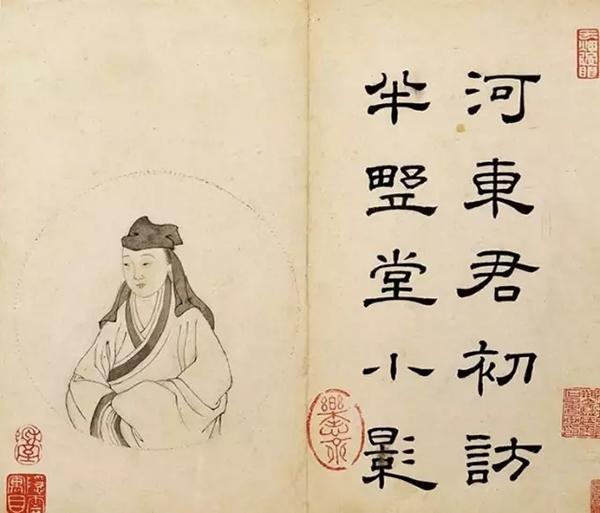 河東君初訪
半野堂小影